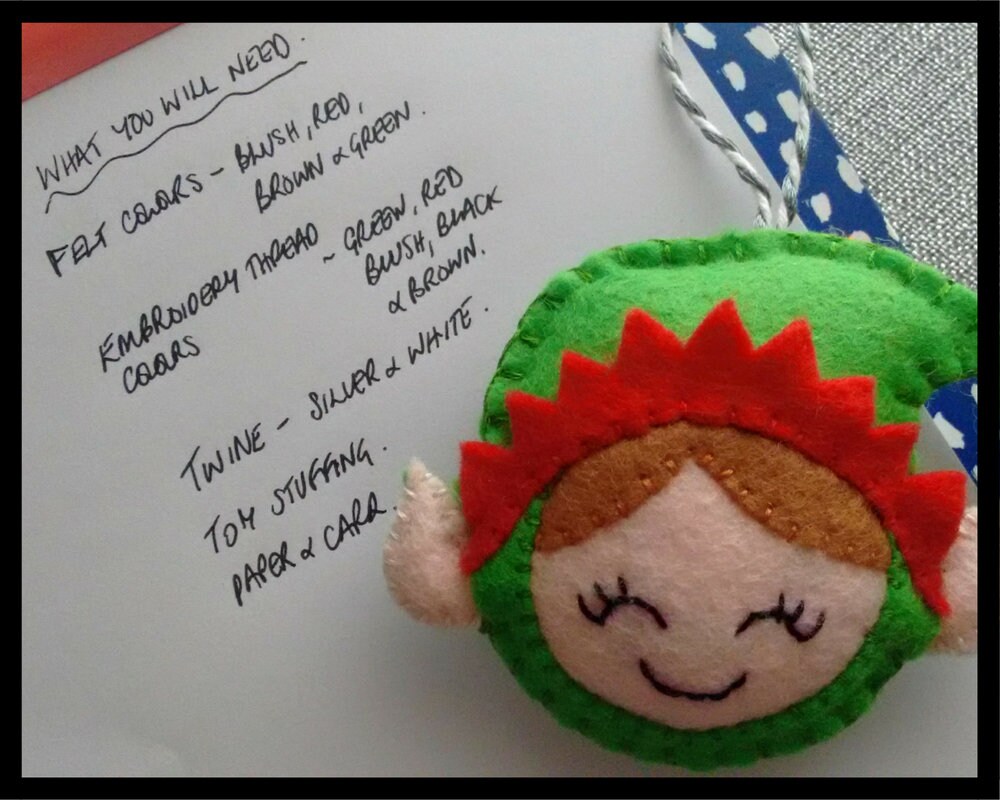 WHAT YOU WILL NEED.
FELT COLORS - BLUSH, RED,
BROWN & GREEN.
EMBROIDERY THREAD ~ GREEN, RED
COLORS BLUSH, BLACK
& BROWN.
TWINE - SILVER & WHITE.
TOY STUFFING.
PAPER & CARD.